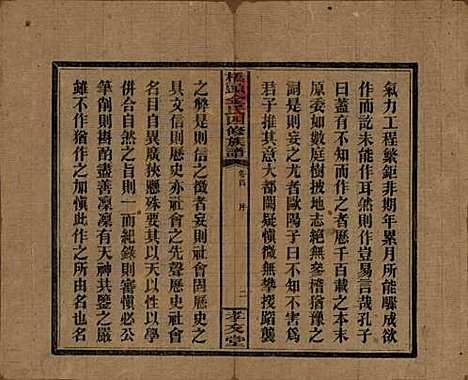 氣力工程繁鉅非期年累月所能驟成欲
作而說未能作耳然則作豈易言哉孔子
曰蓋有不知而作之者歷千百載之本末
原委如數庭樹披地志絕無參稽猶豫之
詞是則妄之尤者歐陽子曰不沒其實爲
君子推其意大都闕疑愼微無攀援蹈襲
橋頭金氏四修族譜
卷首
序
二
孝友堂
之弊是則信之徵者妄則社會固歷史之
具文信則歷史亦社會之先聲歷史社會
名目異廣狹懸殊要其以天以性以學
併合自然之旨則一而紀錄則審愼必公
筆削則斟酌盡善凜凜有天神共鑒之嚴
雖不作猶作之加愼此作之所由名之